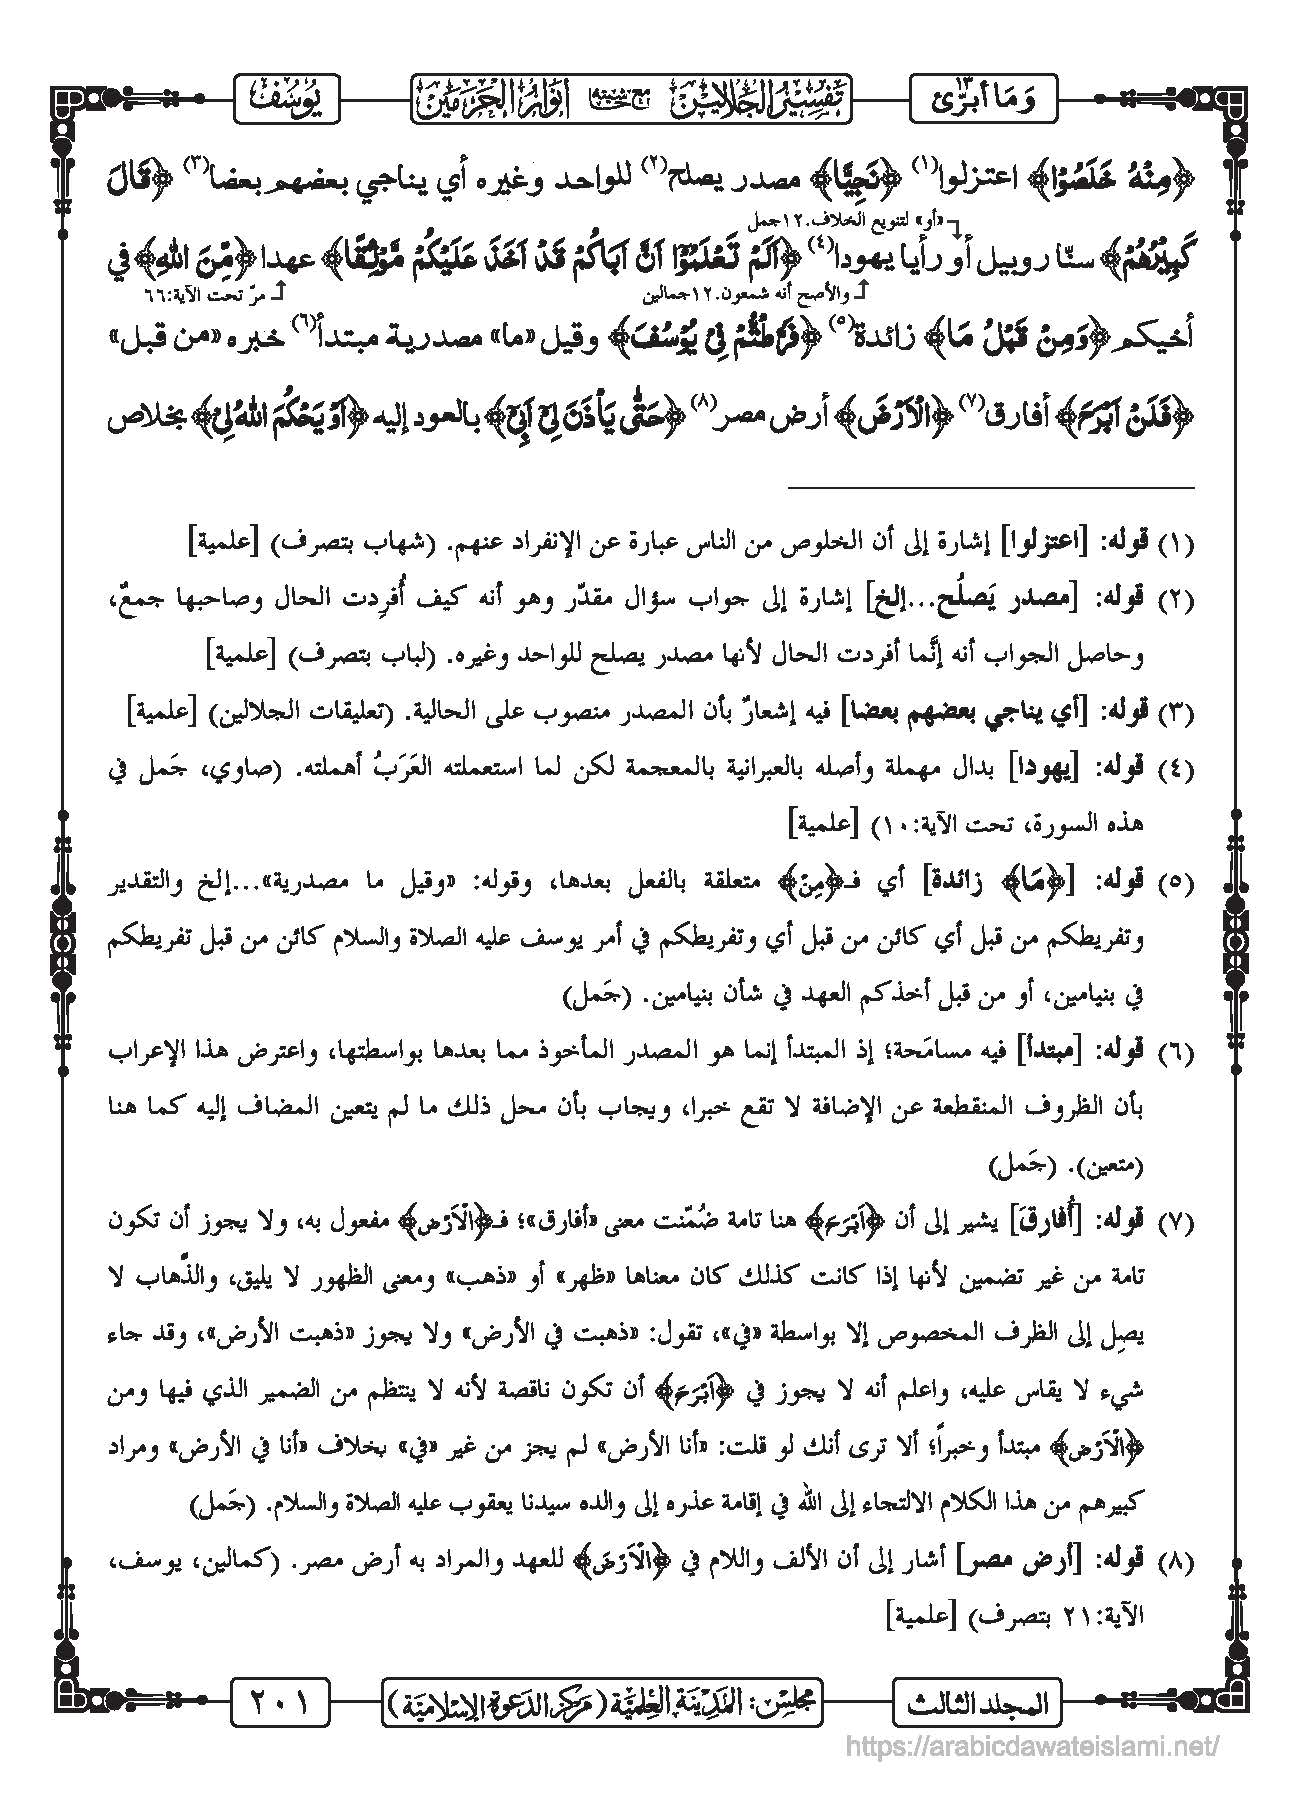 وَمَا أُبَرِّئُ ١٣
تَفْسِيْرُ الْجَلَالَيْن مع حاشيته أَنْوَارُ الْحَرَمَيْن
يُوْسُف
﴿مِنْهُ خَلَصُوْا﴾ اعتزلوا(١) ﴿نَجِيًّا﴾ مصدر يصلح(٢) للواحد وغيره أي يناجي بعضهم بعضا(٣) ﴿قَالَ
«أو» لتنويع الخلاف.١٢جمل
كَبِيْرُهُمْ﴾ سنّا روبيل أو رأيا يهودا(٤) ﴿اَلَمْ تَعْلَمُوْۤا اَنَّ اَبَاكُمْ قَدْ اَخَذَ عَلَيْكُمْ مَّوْثِقًا﴾ عهدا ﴿مِّنَ اللهِ﴾ في
والأصح أنه شمعون.١٢جمالين
مرّ تحت الآية:٦٦
أخيكم ﴿وَمِنْ قَبْلُ مَا﴾ زائدة(٥) ﴿فَرَّطْتُّمْ فِيْ يُوْسُفَ﴾ وقيل «ما» مصدرية مبتدأ(٦) خبره «من قبل»
﴿فَلَنْ اَبْرَحَ﴾ أفارق(٧) ﴿الْاَرْضَ﴾ أرض مصر(٨) ﴿حَتّٰى يَاْذَنَ لِيْۤ اَبِيْۤ﴾ بالعود إليه ﴿اَوْ يَحْكُمَ اللهُ لِيْ﴾ بخلاص
(١) قوله: [اعتزلوا] إشارة إلى أن الخلوص من الناس عبارة عن الإنفراد عنهم. (شهاب بتصرف) [علمية]
(٢) قوله: [مصدر يَصلُح...إلخ] إشارة إلى جواب سؤال مقدّر وهو أنه كيف أُفرِدت الحال وصاحبها جمعٌ،
وحاصل الجواب أنه إنَّما أفردت الحال لأنها مصدر يصلح للواحد وغيره. (لباب بتصرف) [علمية]
(٣) قوله: [أي يناجي بعضهم بعضا] فيه إشعارٌ بأن المصدر منصوب على الحالية. (تعليقات الجلالين) [علمية]
(٤) قوله: [يهودا] بدال مهملة وأصله بالعبرانية بالمعجمة لكن لما استعملته العَرَبُ أهملته. (صاوي، جَمل في
هذه السورة، تحت الآية:١٠) [علمية]
(٥) قوله: [﴿مَا﴾ زائدة] أي فـ﴿مِنْ﴾ متعلقة بالفعل بعدها، وقوله: «وقيل ما مصدرية»...إلخ والتقدير
وتفريطكم من قبل أي كائن من قبل أي وتفريطكم في أمر يوسف عليه الصلاة والسلام كائن من قبل تفريطكم
في بنيامين، أو من قبل أخذكم العهد في شأن بنيامين. (جَمل)
(٦) قوله: [مبتدأ] فيه مسامَحة؛ إذ المبتدأ إنما هو المصدر المأخوذ مما بعدها بواسطتها، واعترض هذا الإعراب
بأن الظروف المنقطعة عن الإضافة لا تقع خبرا، ويجاب بأن محل ذلك ما لم يتعين المضاف إليه كما هنا
(متعين). (جَمل)
(٧) قوله: [أُفارقَ] يشير إلى أن ﴿اَبْرَحَ﴾ هنا تامة ضُمّنت معنى «أفارق»؛ فـ﴿الْاَرْضَ﴾ مفعول به، ولا يجوز أن تكون
تامة من غير تضمين لأنها إذا كانت كذلك كان معناها «ظهر» أو «ذهب» ومعنى الظهور لا يليق، والذَّهاب لا
يصِل إلى الظرف المخصوص إلا بواسطة «في»، تقول: «ذهبت في الأرض» ولا يجوز «ذهبت الأرض»، وقد جاء
شيء لا يقاس عليه، واعلم أنه لا يجوز في ﴿اَبْرَحَ﴾ أن تكون ناقصة لأنه لا ينتظم من الضمير الذي فيها ومن
﴿الْاَرْضَ﴾ مبتدأ وخبراً؛ ألا ترى أنك لو قلت: «أنا الأرض» لم يجز من غير «في» بخلاف «أنا في الأرض» ومراد
كبيرهم من هذا الكلام الالتجاء إلى الله في إقامة عذره إلى والده سيدنا يعقوب عليه الصلاة والسلام. (جَمل)
(٨) قوله: [أرض مصر] أشار إلى أن الألف واللام في ﴿الْاَرْضَ﴾ للعهد والمراد به أرض مصر. (كمالين، يوسف،
الآية:٢١ بتصرف) [علمية]
المجلد الثالث
مجلس: المَدِيْنَة العِلْمِيَّة (مركز الدعوة الإسلاميّة)
٢٠١
https://arabicdawateislami.net/